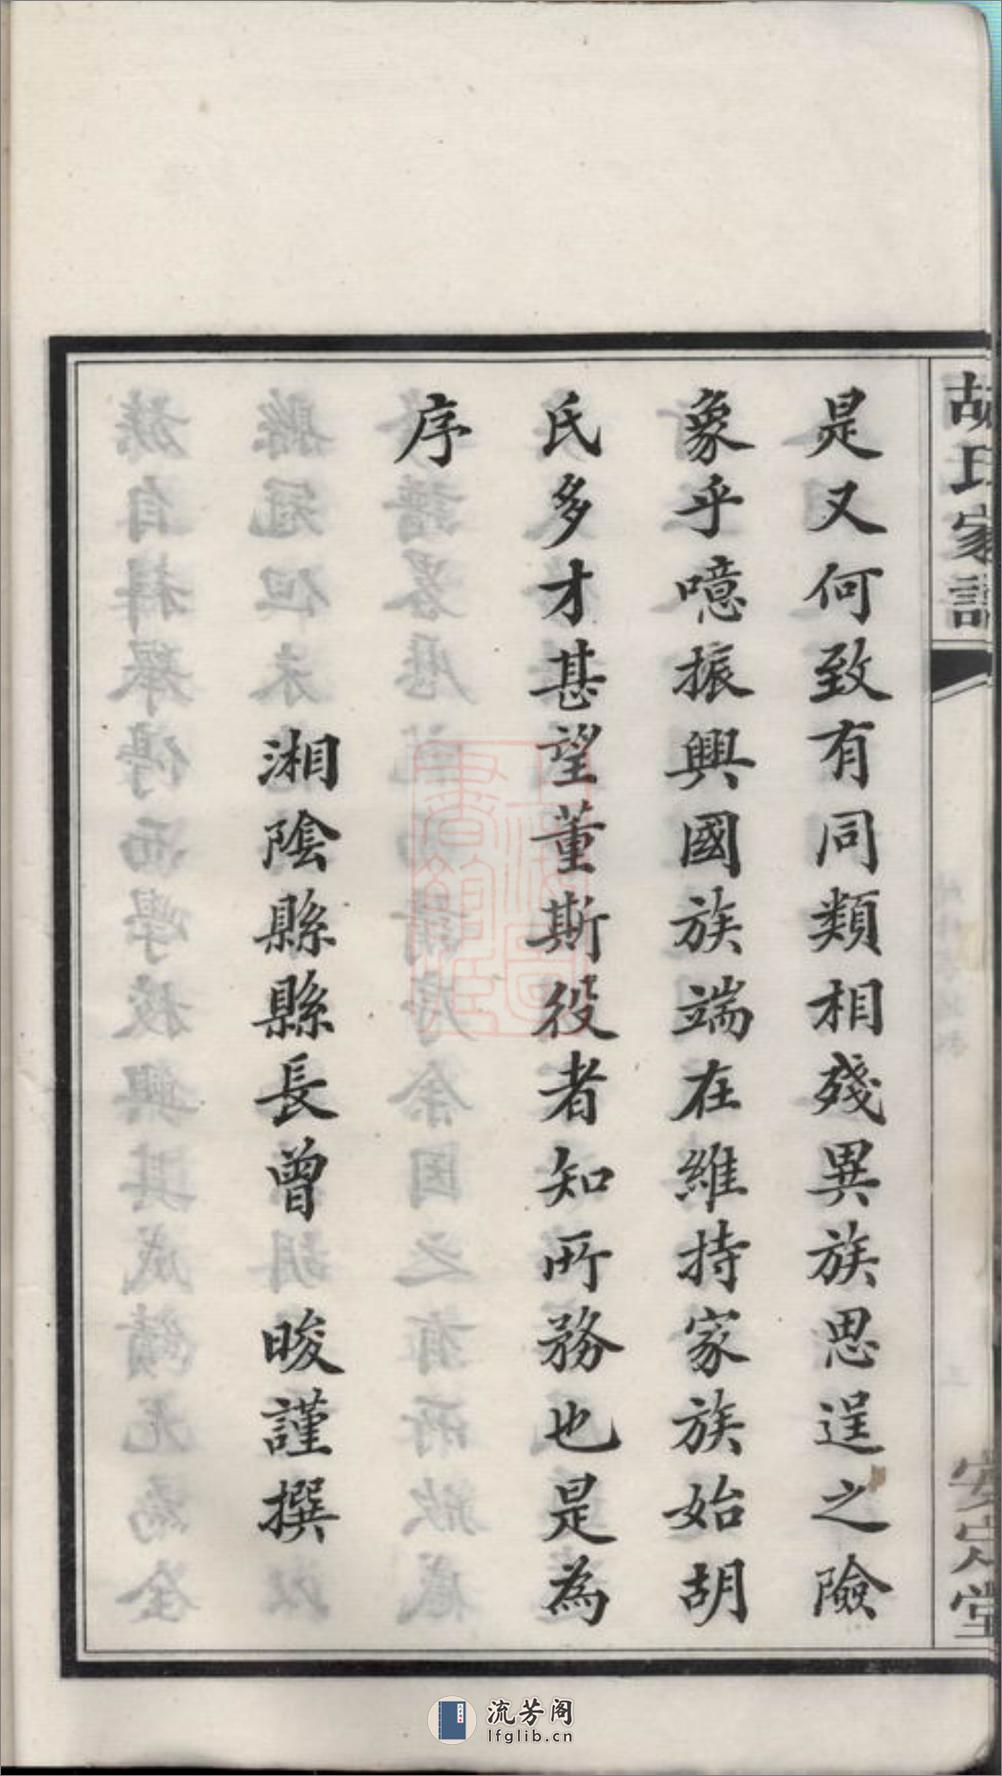 胡氏家譜
安定堂
是又何致有同類相殘異族思逞之險
象乎噫振興國族端在維持家族始胡
氏多才甚望董斯役者知所務也是為
序
湘陰縣縣長曾 晙謹撰
流芳阁
lfglib.cn